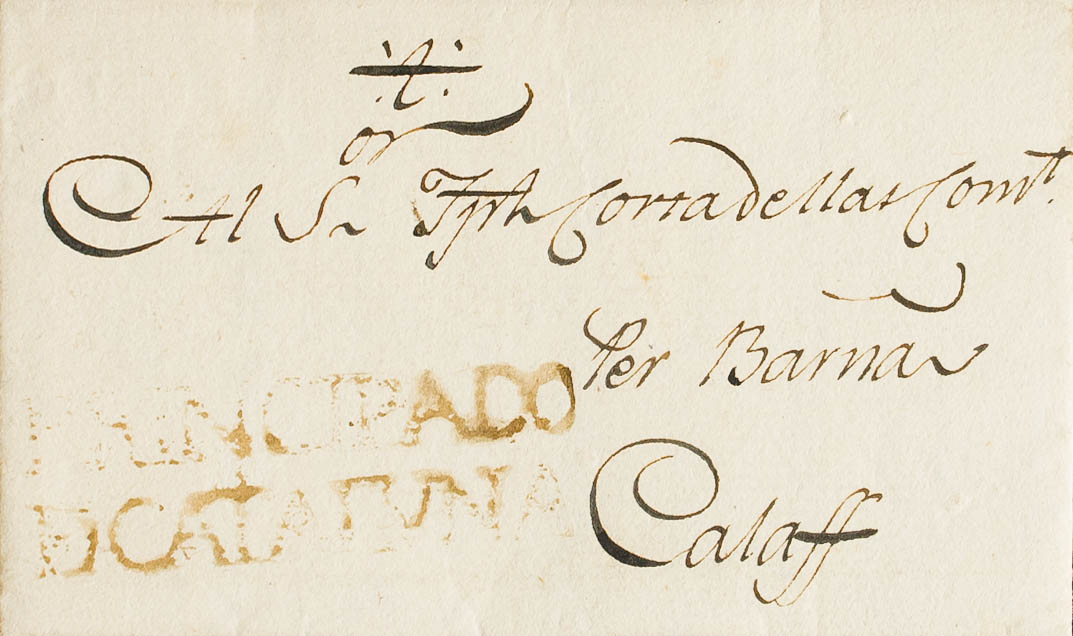 .t.
Al Sor Jph Cortadellas Comt.
Per Barña
Calaff
PRINCIPADO
D CATALVNA